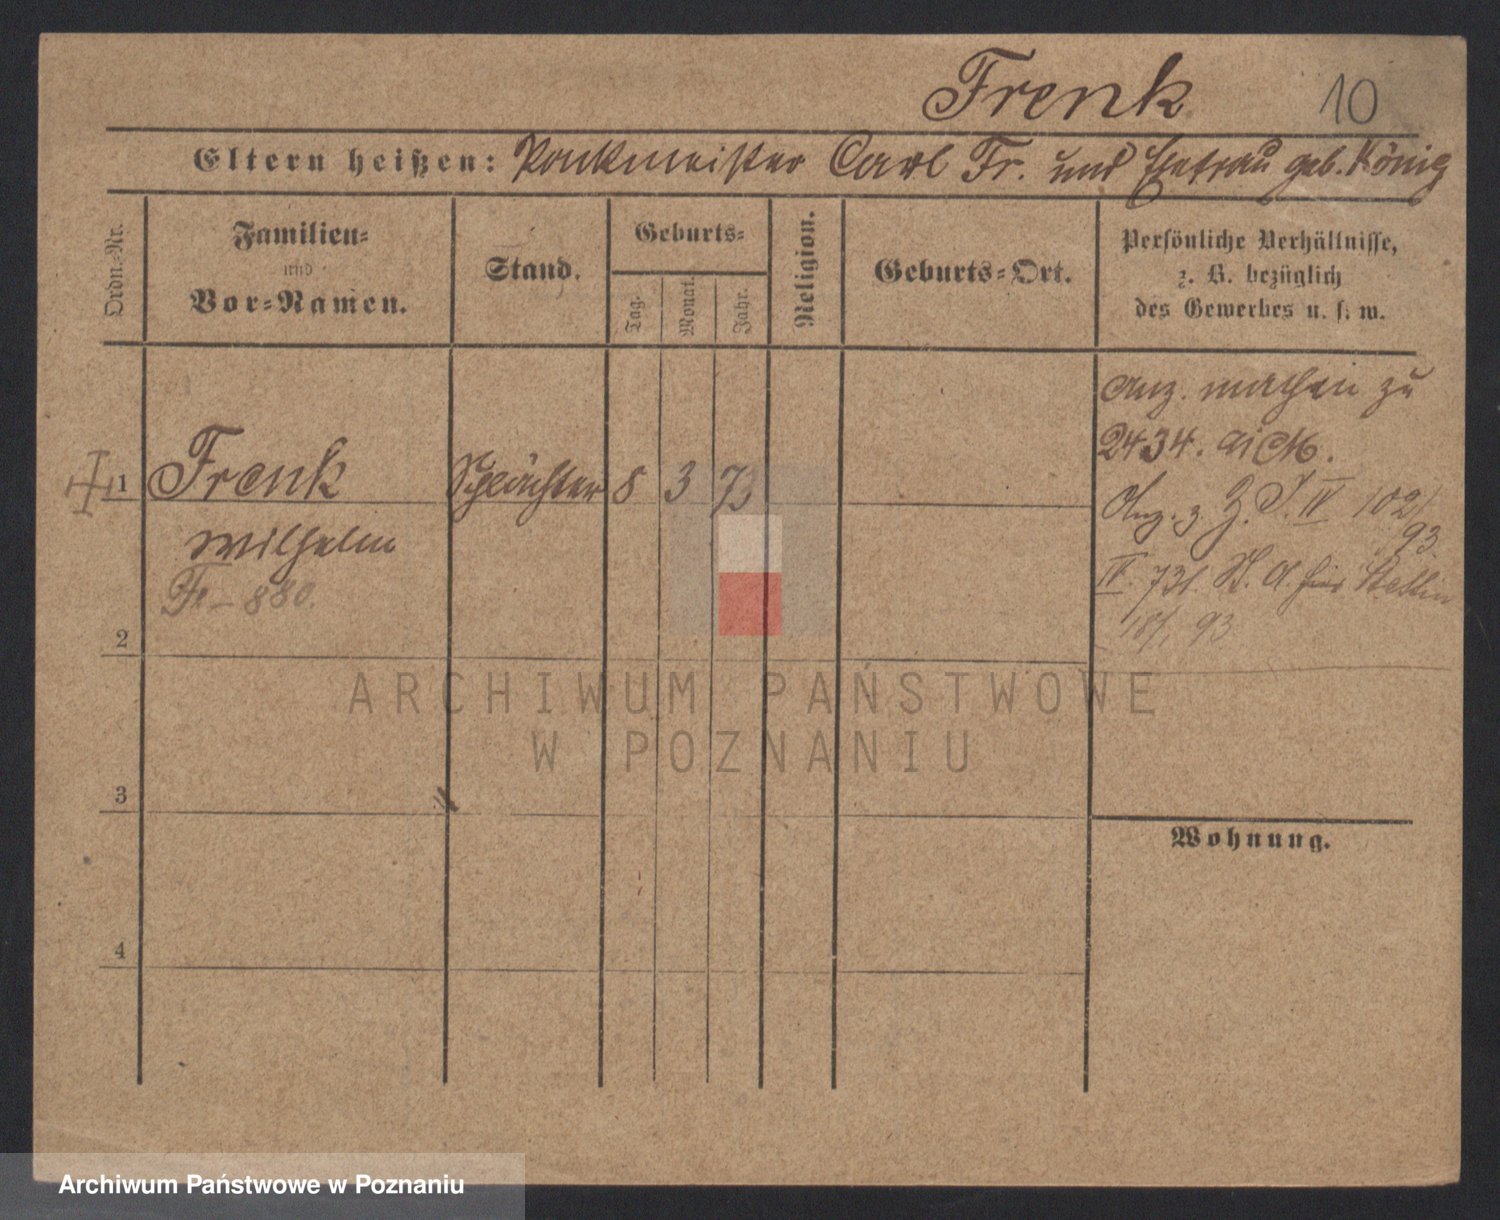 Frenk
10
Eltern heißen: Packmeister Carl Fr. und Ehefrau geb. König
Ordn.-Nr.
Familien-
und
Vor-Namen.
Stand.
Geburts-
Tag.
Monat.
Jahr.
Religion.
Geburts-Ort.
Persönliche Verhältnisse,
z. B. bezüglich
des Gewerbes u. s. w.
1 Frenk Schlächter 8 3 73
Wilhelm
Fr - 880.
Anz. machen zu
2434.
Anz. z. IV 102/
93.
IV. 731. für Stettin
18/1 93
2
3
4
Wohnung.
ARCHIWUM PAŃSTWOWE
W POZNANIU
Archiwum Państwowe w Poznaniu